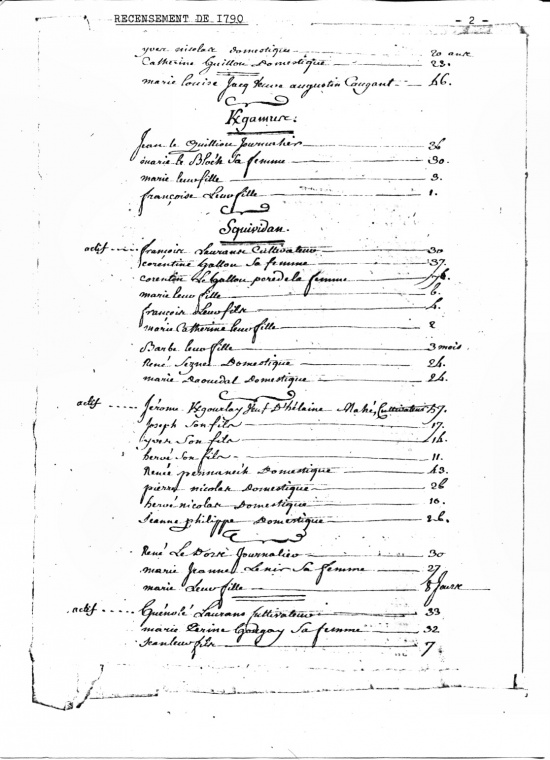 RECENSEMENT DE 1790 - 2 -
yves nicolas Domestique 20 ans
Catherine Guillou Domestique 23.
marie louise Jacq veuve augustin Caugant 46.
Kgamus:
Jean le Quilliou Journalier 36
marie le Bloch Sa femme 30.
marie leur fille 3.
françoise Leur fille 1.
Squividan.
actif françois Laurans Cultivateur 30
corentine Gallou Sa femme 37.
corentin Le Gallou pere de la femme
marie leur fille 6.
françois Leur fils 4.
marie Catherine leur fille 2
Barbe leur fille 3 mois
René Seznec Domestique 24.
marie Daouidal Domestique 24.
actif Jérome Kgourlay Veuf D'hélaine Mahé, Cultivateur 57.
Joseph Son fils 17.
yves Son fils 14.
hervé Son fils 11.
Renée pennaneih Domestique 43.
pierre nicolas Domestique 26
hervé nicolas Domestique 18.
Jeanne philippe Domestique 26.
René Le Doré Journalier 30
marie Jeanne Le noir Sa femme 27
marie Leur fille 8 Jours
actif Guénolé Laurans Cultivateur 33
marie Perine Sa femme 32
Jean leur fils 7